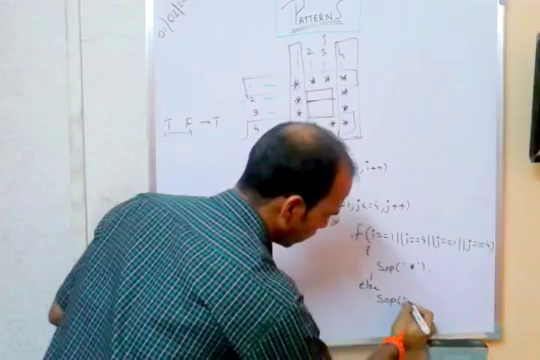 01/02/
PATTERNS
j
1 2 3 4
1 * * * *
2 * *
3 * *
4 * * *
T F → T
, i++)
=1; j<=4; j++)
if(i==1||i==4||j==1||j==4)
{
Sop("*");
}
else
Sop("